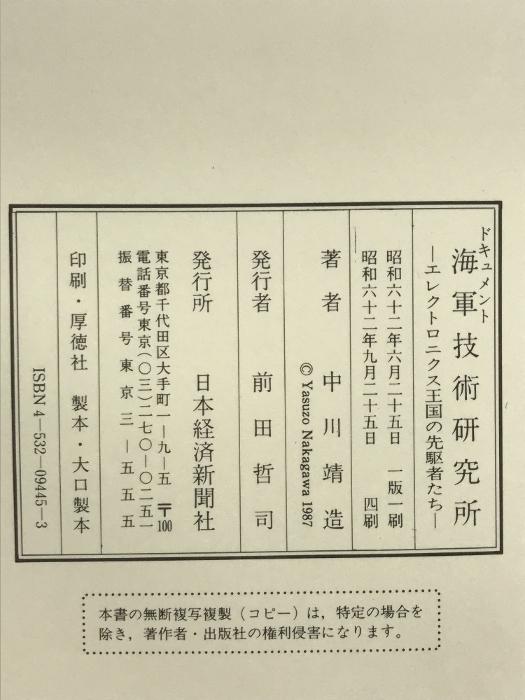 ドキュメント
海軍技術研究所
―エレクトロニクス王国の先駆者たち―
昭和六十二年六月二十五日　一版一刷
昭和六十二年九月二十五日　四刷
著者　中川靖造
© Yasuzo Nakagawa 1987
発行者　前田哲司
発行所　日本経済新聞社
東京都千代田区大手町一―九―五　〒100
電話番号東京(〇三)二七〇―〇二五一
振替番号東京三―五五五
印刷・厚徳社　製本・大口製本
ISBN4―532―09445―3
本書の無断複写複製（コピー）は，特定の場合を
除き，著作者・出版社の権利侵害になります。